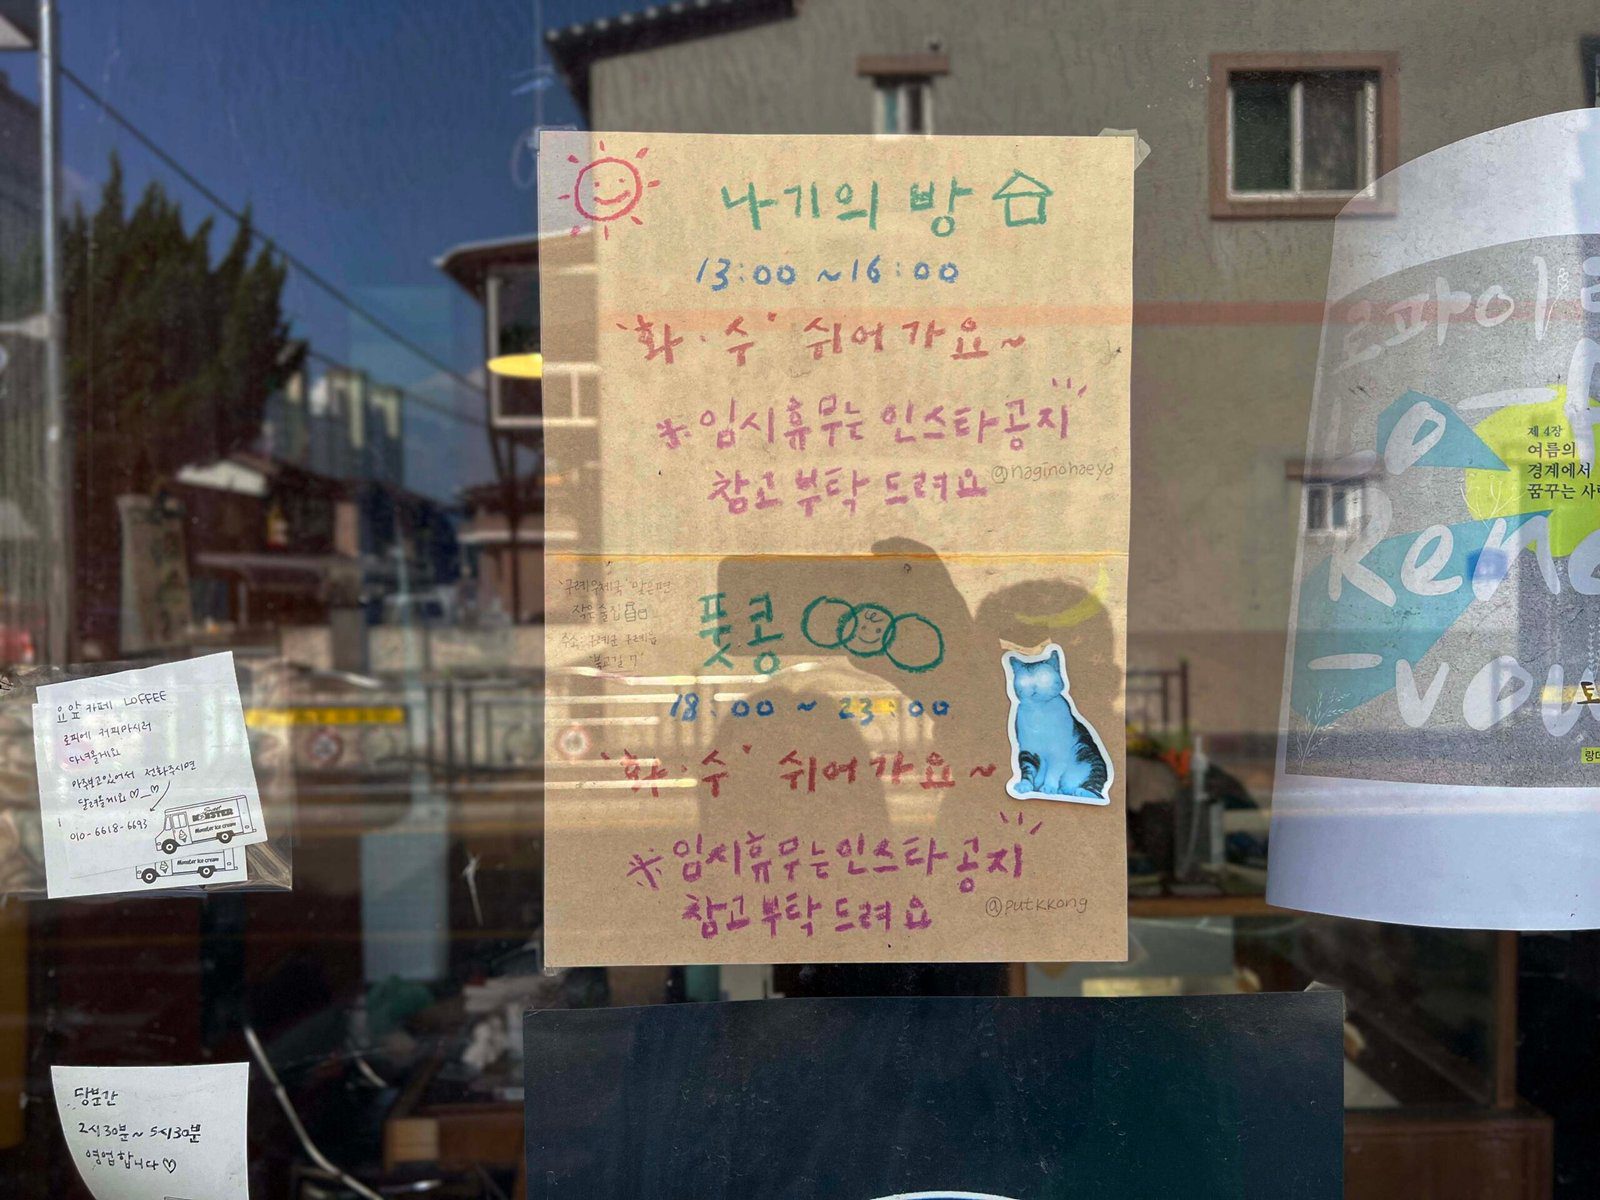 나기의 방
13:00 ~ 16:00
'화·수' 쉬어가요~
※ 임시휴무는 인스타공지
참고 부탁 드려요
@naginohaeya
'구례우체국' 맞은편
작은술집
주소: 구례군 구례읍
'봉고길 7'
풋콩
18:00 ~ 23:00
'화·수' 쉬어가요~
※ 임시휴무는 인스타 공지
참고 부탁 드려요
@putkkong
요 앞 카페 LOFFEE
로피에 커피마시러
다녀올게요
아주보고있어서 전화주시면
달려올게요 ♡_♡
010-6618-6693
Sweet
MONSTER
Monster ice cream
Monster ice cream
당분간
2시30분~5시30분
영업합니다♡
로파이
Lo-fi
Rend
-vou
제 4장
여름의
경계에서
꿈꾸는 사
토
랑데